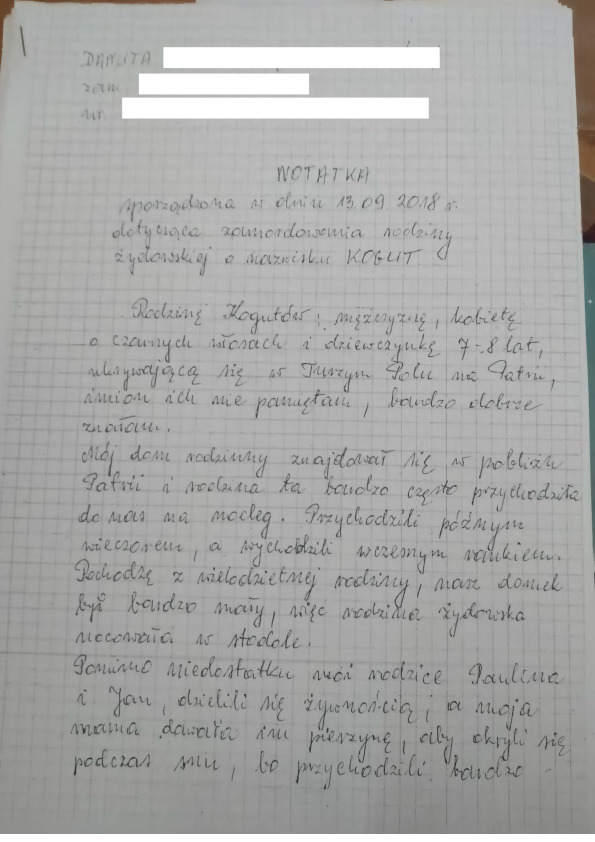 DANUTA
zam.
ur.
NOTATKA
sporządzona w dniu 13.09 2018 r.
dotycząca zamordowania rodziny
żydowskiej o nazwisku KOGUT.
Rodzinę Kogutów; mężczyznę, kobietę
o czarnych włosach i dziewczynkę 7-8 lat,
ukrywającą się w Turzym Polu na Patrii,
imion ich nie pamiętam, bardzo dobrze
znałam.
Mój dom rodzinny znajdował się w pobliżu
Patrii i rodzina ta bardzo często przychodziła
do nas na nocleg. Przychodzili późnym
wieczorem, a wychodzili wczesnym rankiem.
Pochodzę z wielodzietnej rodziny, nasz domek
był bardzo mały, więc rodzina żydowska
nocowała w stodole.
Pomimo niedostatku moi rodzice Paulina
i Jan, dzielili się żywnością; a moja
mama dawała im pierzynę, aby okryli się
podczas snu, bo przychodzili bardzo